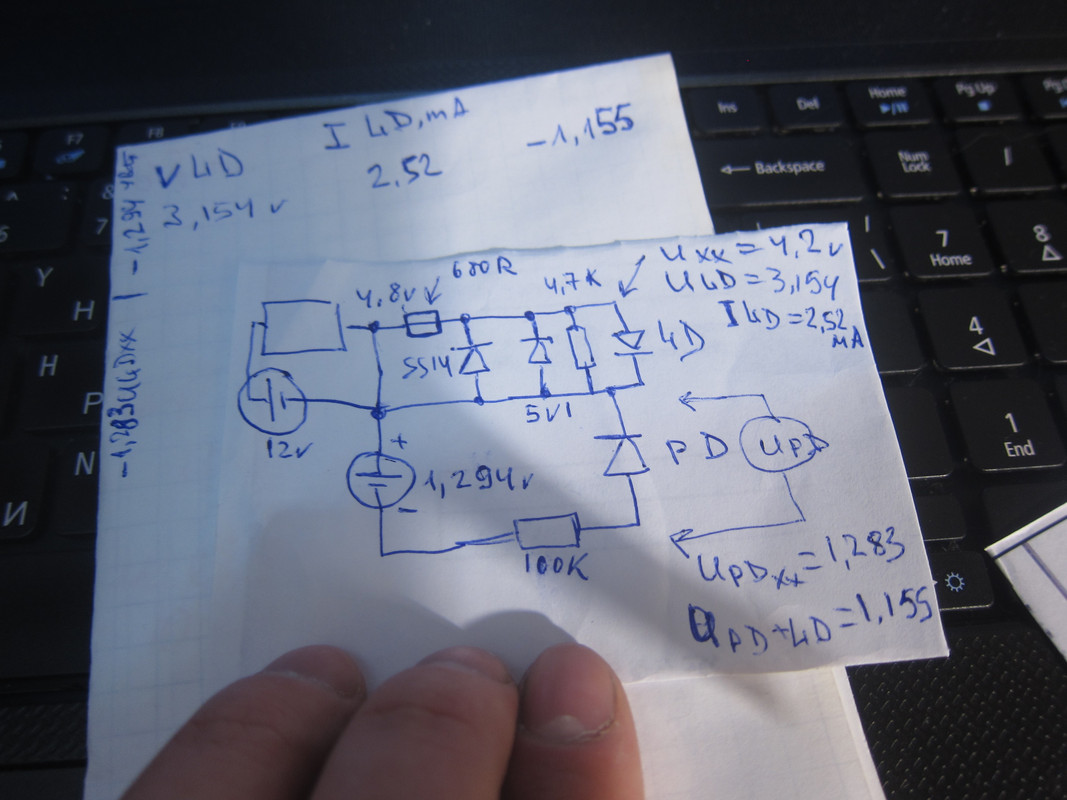 V LD
I LD, mA
-1,155
3,154 v
2,52
-1,283 ULDxx | -1,294
4,8v
680R
4,7K
Uxx = 4,2v
ULD = 3,154
ILD = 2,52
мА
SS14
LD
5V1
12v
+
1,294v
-
PD
UPD
100K
UPDxx = 1,283
UPD+LD = 1,155
F7
F8
Ins
Del
Home
Pg Up
Backspace
Num
Lock
/
7
Home
8
4
1
End
Y
Н
Н
Р
N
И